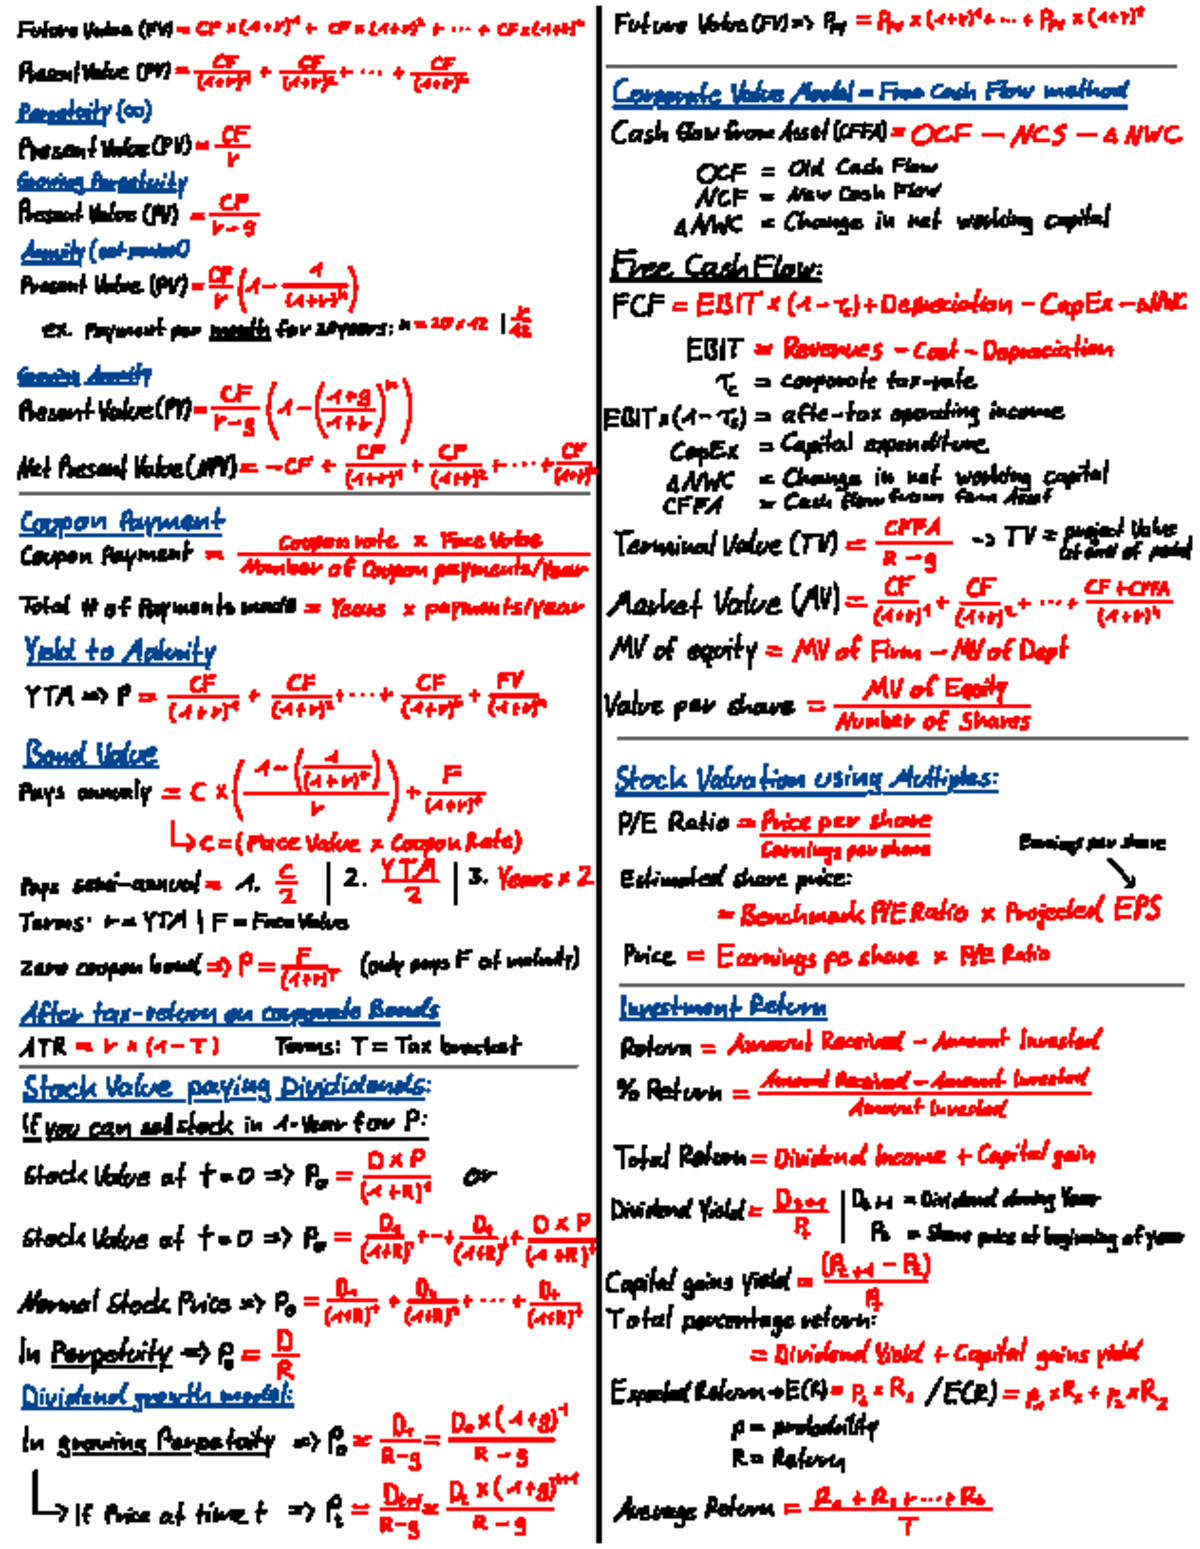 Future Value (FV) = CF × (1+r)¹ + CF × (1+r)² + ... + CF × (1+r)ⁿ
Present Value (PV) = CF/(1+r)¹ + CF/(1+r)² + ... + CF/(1+r)ⁿ
Perpetuity (∞)
Present Value (PV) = CF/r
Growing Perpetuity
Present Value (PV) = CF/r-g
Annuity
Present Value (PV) = CF/r (1 - 1/(1+r)ⁿ)
ex. Payment per month for 20 years: n = 20×12 | r/12
Growing Annuity
Present Value (PV) = CF/r-g (1 - (1+g/1+r)ⁿ)
Net Present Value (NPV) = -CF + CF/(1+r)¹ + CF/(1+r)² + ... + CF/(1+r)ⁿ
Coupon Payment
Coupon Payment = Coupon rate × Face Value/Number of Coupon payments/Year
Total # of Payments made = Years × payments/year
Yield to Maturity
YTM => P = CF/(1+r)¹ + CF/(1+r)² + ... + CF/(1+r)ⁿ + FV/(1+r)ⁿ
Bond Value
Pays annualy = C × (1-(1/(1+r)ᵗ)/r) + F/(1+r)ᵗ
↳ C = (Face Value × Coupon Rate)
Pays semi-annual = 1. C/2 | 2. YTM/2 | 3. Years × 2
Terms: r = YTM | F = Face Value
Zero coupon bond => P = F/(1+r)ᵀ (only pays F at maturity)
After tax-return on corporate Bonds
ATR = r × (1-T) Terms: T = Tax bracket
Stock Value paying Divididends:
If you can sell stock in 1-Year for P:
Stock Value at t=0 => P₀ = D×P/(1+R)¹ or
Stock Value at t=0 => P₀ = D₁/(1+R)¹ + ... + Dₜ/(1+R)ᵗ + D×P/(1+R)ᵗ
Normal Stock Price => P₀ = D₁/(1+R)¹ + D₂/(1+R)² + ... + Dₜ/(1+R)ᵗ
In Perpetuity => P₀ = D/R
Dividend growth model:
In growing Perpetuity => P₀ = D₁/R-g = D₀×(1+g)¹/R-g
↳ If Price at time t => Pₜ = Dₜ₊₁/R-g = Dₜ×(1+g)ᵗ⁺¹/R-g
Future Value (FV) => Ppv = Ppv × (1+r)¹ + ... + Ppv × (1+r)ᵗ
Corporate Value Model = Free Cash Flow method
Cash flow from Asset (CFFA) = OCF - NCS - ΔNWC
OCF = Old Cash Flow
NCF = New Cash Flow
ΔNWC = Change in net working capital
Free Cash Flow:
FCF = EBIT × (1-τc) + Depreciation - CapEx - ΔNWC
EBIT = Revenues - Cost - Depreciation
τc = corporate tax-rate
EBIT × (1-τc) = afte-tax operating income
CapEx = Capital expenditure
ΔNWC = Change in net working capital
CFFA = Cash flow from Asset
Terminal Value (TV) = CFFA/R-g -> TV = project Value at end of period
Market Value (MV) = CF/(1+r)¹ + CF/(1+r)² + ... + CF+CFFA/(1+r)ⁿ
MV of equity = MV of Firm - MV of Dept
Value per share = MV of Equity/Number of Shares
Stock Valuation using Multiples:
P/E Ratio = Price per share/Earnings per share
Earnings per share
Estimated share price:
= Benchmark P/E Ratio × Projected EPS
Price = Earnings pe share × P/E Ratio
Investment Return
Return = Amount Received - Amount Invested
% Return = Amount Received - Amount Invested/Amount Invested
Total Return = Dividend Income + Capital gain
Dividend Yield = Dₜ₊₁/Pₜ | Dₜ₊₁ = Dividend during Year
Pₜ = Share price at beginning of year
Capital gains Yield = (Pₜ₊₁ - Pₜ)/Pₜ
Total percentage return:
= Dividend Yield + Capital gains yield
Expected Return → E(R) = p₁×R₁ / E(R) = p₁×R₁ + p₂×R₂
p = probability
R = Return
Average Return = R₁ + R₂ + ... + Rₜ/T